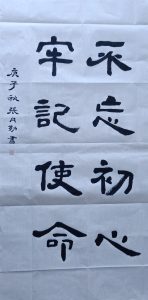 不忘初心
牢記使命
庚子秋張月勤書